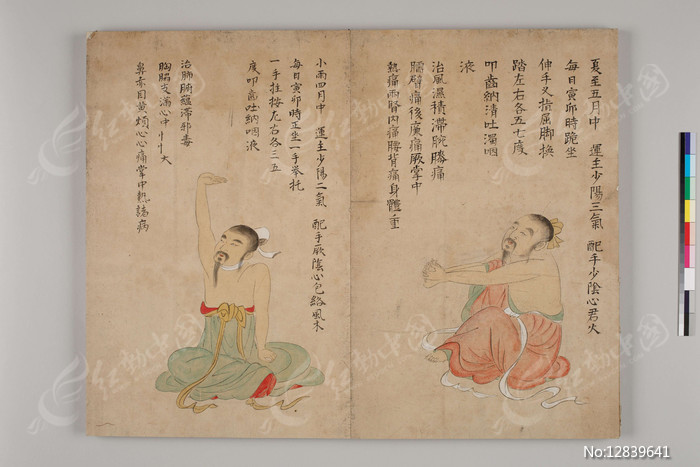 夏至五月中 運主少陽三氣 配手少陰心君火
每日寅卯時跪坐
伸手叉指屈脚換
踏左右各五七度
叩齒納清吐濁咽
液
治風濕積滯腕膝痛
臑臂痛後廉痛厥掌中
熱痛兩腎內痛腰背痛身體重
小雨四月中 運主少陽二氣 配手厥陰心包絡風木
每日寅卯時正坐一手舉托
一手拄按左右各三五
度叩齒吐納咽液
治肺腑蘊滯邪毒
胸脇支滿心中忄忄大
鼻赤目黃煩心心痛掌中熱諸病
红动中国
No:12839641